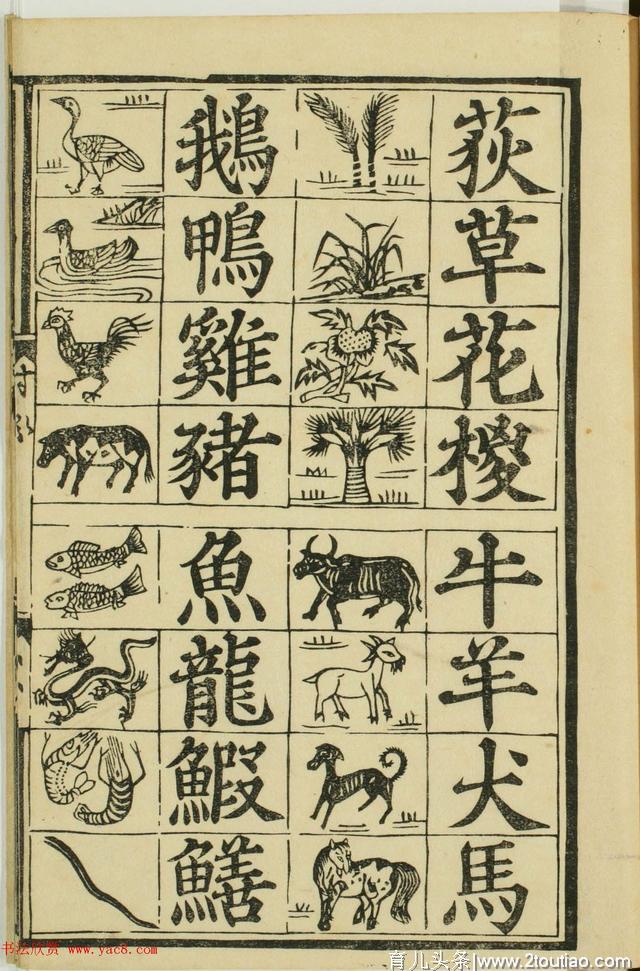 荻草花椶
鵝鴨雞豬
牛羊犬馬
魚龍鰕鱔
书法欣赏 www.yac8.com
育儿头条/www.2toutiao.com